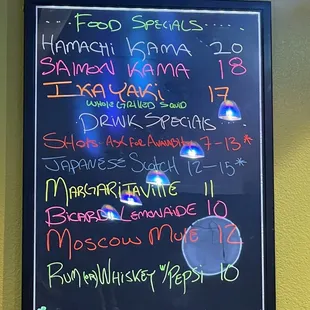 ... FOOD SPECIALS ....
HAMACHI KAMA 20
SALMON KAMA 18
IKAYAKI 17
WHOLE GRILLED SQUID
DRINK SPECIALS....
SHOTS - ASK FOR AVAILABILITY 7-13*
JAPANESE SCOTCH 12-15*
MARGARITAVILLE 11
BICARDI LEMONAIDE 10
MOSCOW MULE 12
RUM (OR) WHISKEY W/PEPSI 10